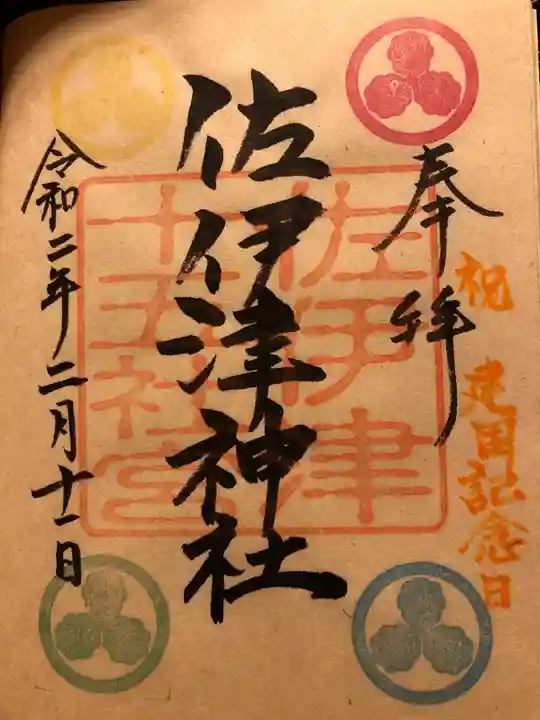 奉拝
祝 建国記念日
佐伊津神社
佐伊津
十五社宮
令和二年二月十一日